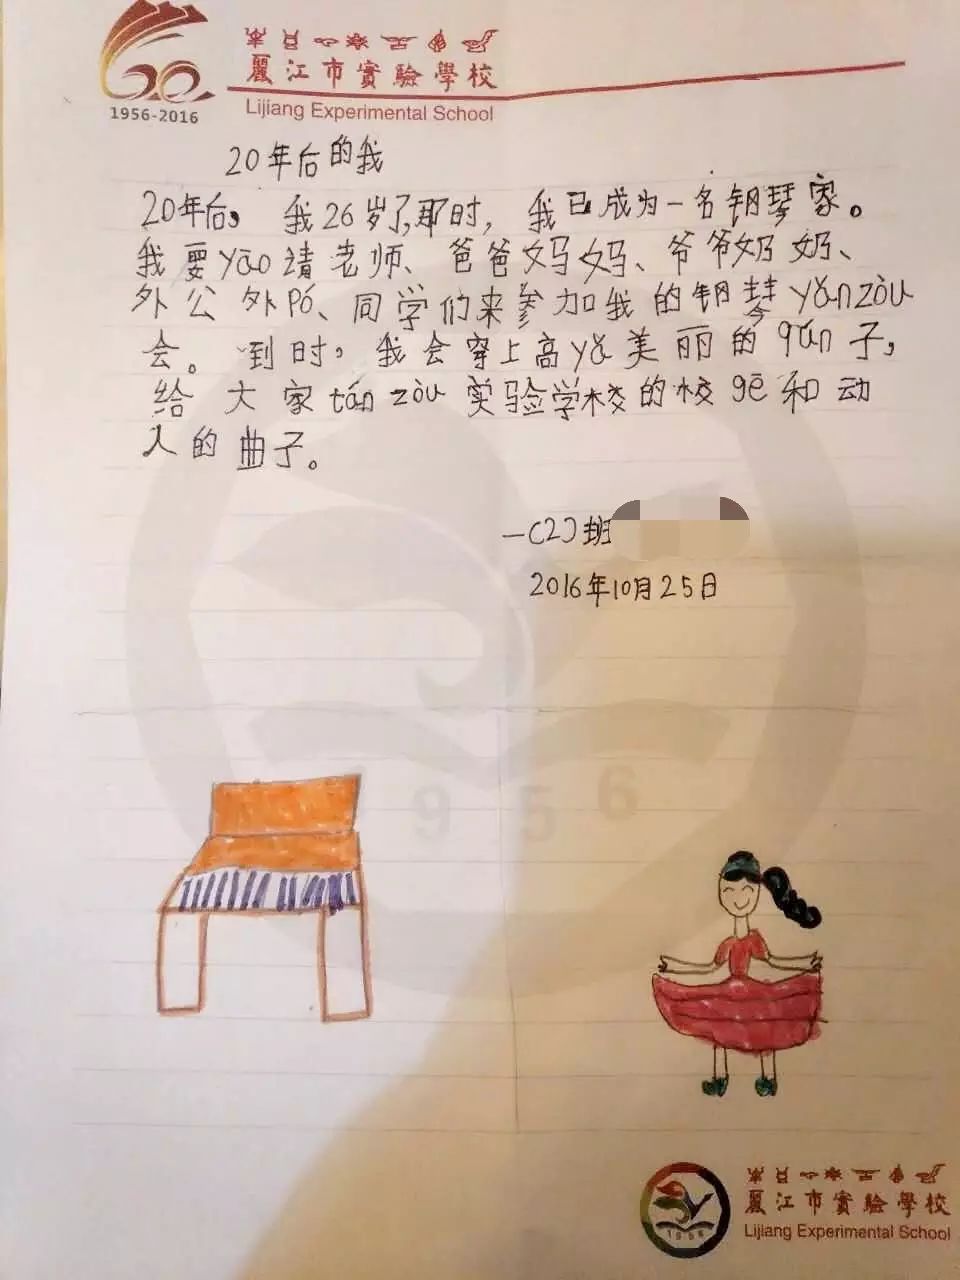 1956-2016
麗江市實驗學校
Lijiang Experimental School
20年后的我
20年后，我26岁了，那时，我已成为一名钢琴家。
我要yāo请老师、爸爸妈妈、爷爷奶奶、
外公外pó、同学们来参加我的钢琴yǎnzòu
会。到时，我会穿上高yǎ美丽的qún子，
给大家tánzòu实验学校的校gē和动
人的曲子。
一（2）班
2016年10月25日
1956
1956
麗江市實驗學校
Lijiang Experimental School